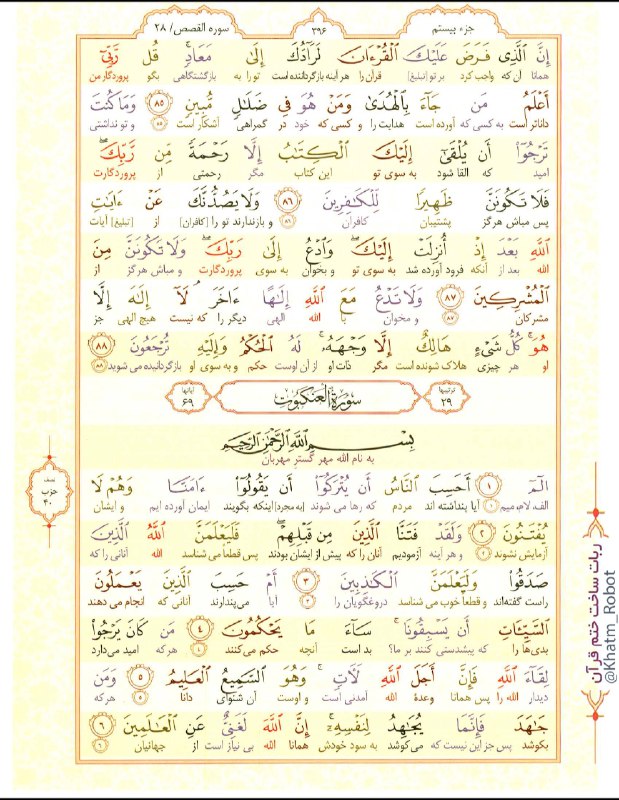 جزء بیستم
۳۹۶
سوره القصص/ ۲۸
إِنَّ ٱلَّذِی فَرَضَ عَلَيْكَ ٱلْقُرْءَانَ لَرَآدُّكَ إِلَىٰ مَعَادٍ ۚ قُل رَّبِّیٓ
همانا آن که واجب کرد بر تو [تبلیغ] قرآن را هر اینه بازگرداننده است تو را به بازگشتگاهی بگو پروردگار من
أَعْلَمُ مَن جَآءَ بِٱلْهُدَىٰ وَمَنْ هُوَ فِی ضَلَٰلٍ مُّبِينٍ ۸۵ وَمَا كُنتَ
داناتر است به کسی که آورده است هدایت را و کسی که خود در گمراهی آشکار است ۸۵ و تو نداشتی
تَرْجُوٓا۟ أَن يُلْقَىٰٓ إِلَيْكَ ٱلْكِتَٰبُ إِلَّا رَحْمَةً مِّن رَّبِّكَ ۖ
امید که القا شود به سوی تو این کتاب مگر رحمتی از پروردگارت
فَلَا تَكُونَنَّ ظَهِيرًا لِّلْكَٰفِرِينَ ۸۶ وَلَا يَصُدُّنَّكَ عَنْ ءَايَٰتِ
پس مباش هرگز پشتیبان کافران ۸۶ و بازندارند تو را [کافران] از [تبلیغ] آیات
ٱللَّهِ بَعْدَ إِذْ أُنزِلَتْ إِلَيْكَ ۖ وَٱدْعُ إِلَىٰ رَبِّكَ ۖ وَلَا تَكُونَنَّ مِنَ
الله بعد از آنکه فرود آورده شد به سوی تو و بخوان به سوی پروردگارت و مباش هرگز از
ٱلْمُشْرِكِينَ ۸۷ وَلَا تَدْعُ مَعَ ٱللَّهِ إِلَٰهًا ءَاخَرَ ۘ لَآ إِلَٰهَ إِلَّا
مشرکان ۸۷ و مخوان با الله الهی دیگر را که نیست هیچ الهی جز
هُوَ ۚ كُلُّ شَیْءٍ هَالِكٌ إِلَّا وَجْهَهُۥ ۚ لَهُ ٱلْحُكْمُ وَإِلَيْهِ تُرْجَعُونَ ۸۸
او هر چیزی هلاک شونده است مگر ذات او از آن اوست حکم و به سوی او بازگردانیده می شوید ۸۸
ترتیبها ۲۹
سورة العنكبوت
آیاتها ۶۹
بِسْمِ ٱللَّهِ ٱلرَّحْمَٰنِ ٱلرَّحِيمِ
به نام الله مهر گستر مهربان
الٓمٓ ۱ أَحَسِبَ ٱلنَّاسُ أَن يُتْرَكُوٓا۟ أَن يَقُولُوٓا۟ ءَامَنَّا وَهُمْ لَا
الف، لام، میم ۱ آیا بنداشته اند مردم که رها می شوند [به مجرد] اینکه بگویند ایمان آورده ایم و ایشان
يُفْتَنُونَ ۲ وَلَقَدْ فَتَنَّا ٱلَّذِينَ مِن قَبْلِهِمْ ۖ فَلَيَعْلَمَنَّ ٱللَّهُ ٱلَّذِينَ
آزمایش نشوند ۲ و هر آینه آزمودیم آنان را که پیش از ایشان بودند پس قطعا می شناسد الله آنانی را که
صَدَقُوا۟ وَلَيَعْلَمَنَّ ٱلْكَٰذِبِينَ ۳ أَمْ حَسِبَ ٱلَّذِينَ يَعْمَلُونَ
راست گفته‌اند و قطعاً خوب می شناسد دروغگویان را ۳ آیا می‌پندارند آنانی که انجام می دهند
ٱلسَّيِّـَٔاتِ أَن يَسْبِقُونَا ۚ سَآءَ مَا يَحْكُمُونَ ۴ مَن كَانَ يَرْجُوا۟
بدی‌ها را که پیشدستی کنند بر ما؟ بد است آنچه حکم می‌کنند ۴ هرکه امید می‌دارد
لِقَآءَ ٱللَّهِ فَإِنَّ أَجَلَ ٱللَّهِ لَءَاتٍ ۚ وَهُوَ ٱلسَّمِيعُ ٱلْعَلِيمُ ۵ وَمَن
دیدار الله را پس همانا وعدهٔ الله آمدنی است و اوست آن شنوای دانا ۵ و هرکه
جَٰهَدَ فَإِنَّمَا يُجَٰهِدُ لِنَفْسِهِۦٓ ۚ إِنَّ ٱللَّهَ لَغَنِیٌّ عَنِ ٱلْعَٰلَمِينَ ۶
بکوشد پس جز این نیست که می‌کوشد به سود خودش همانا الله بی نیاز است از جهانیان ۶
نصف
حزب
۴۰
ربات ساخت ختم قرآن
@Khatm_Robot